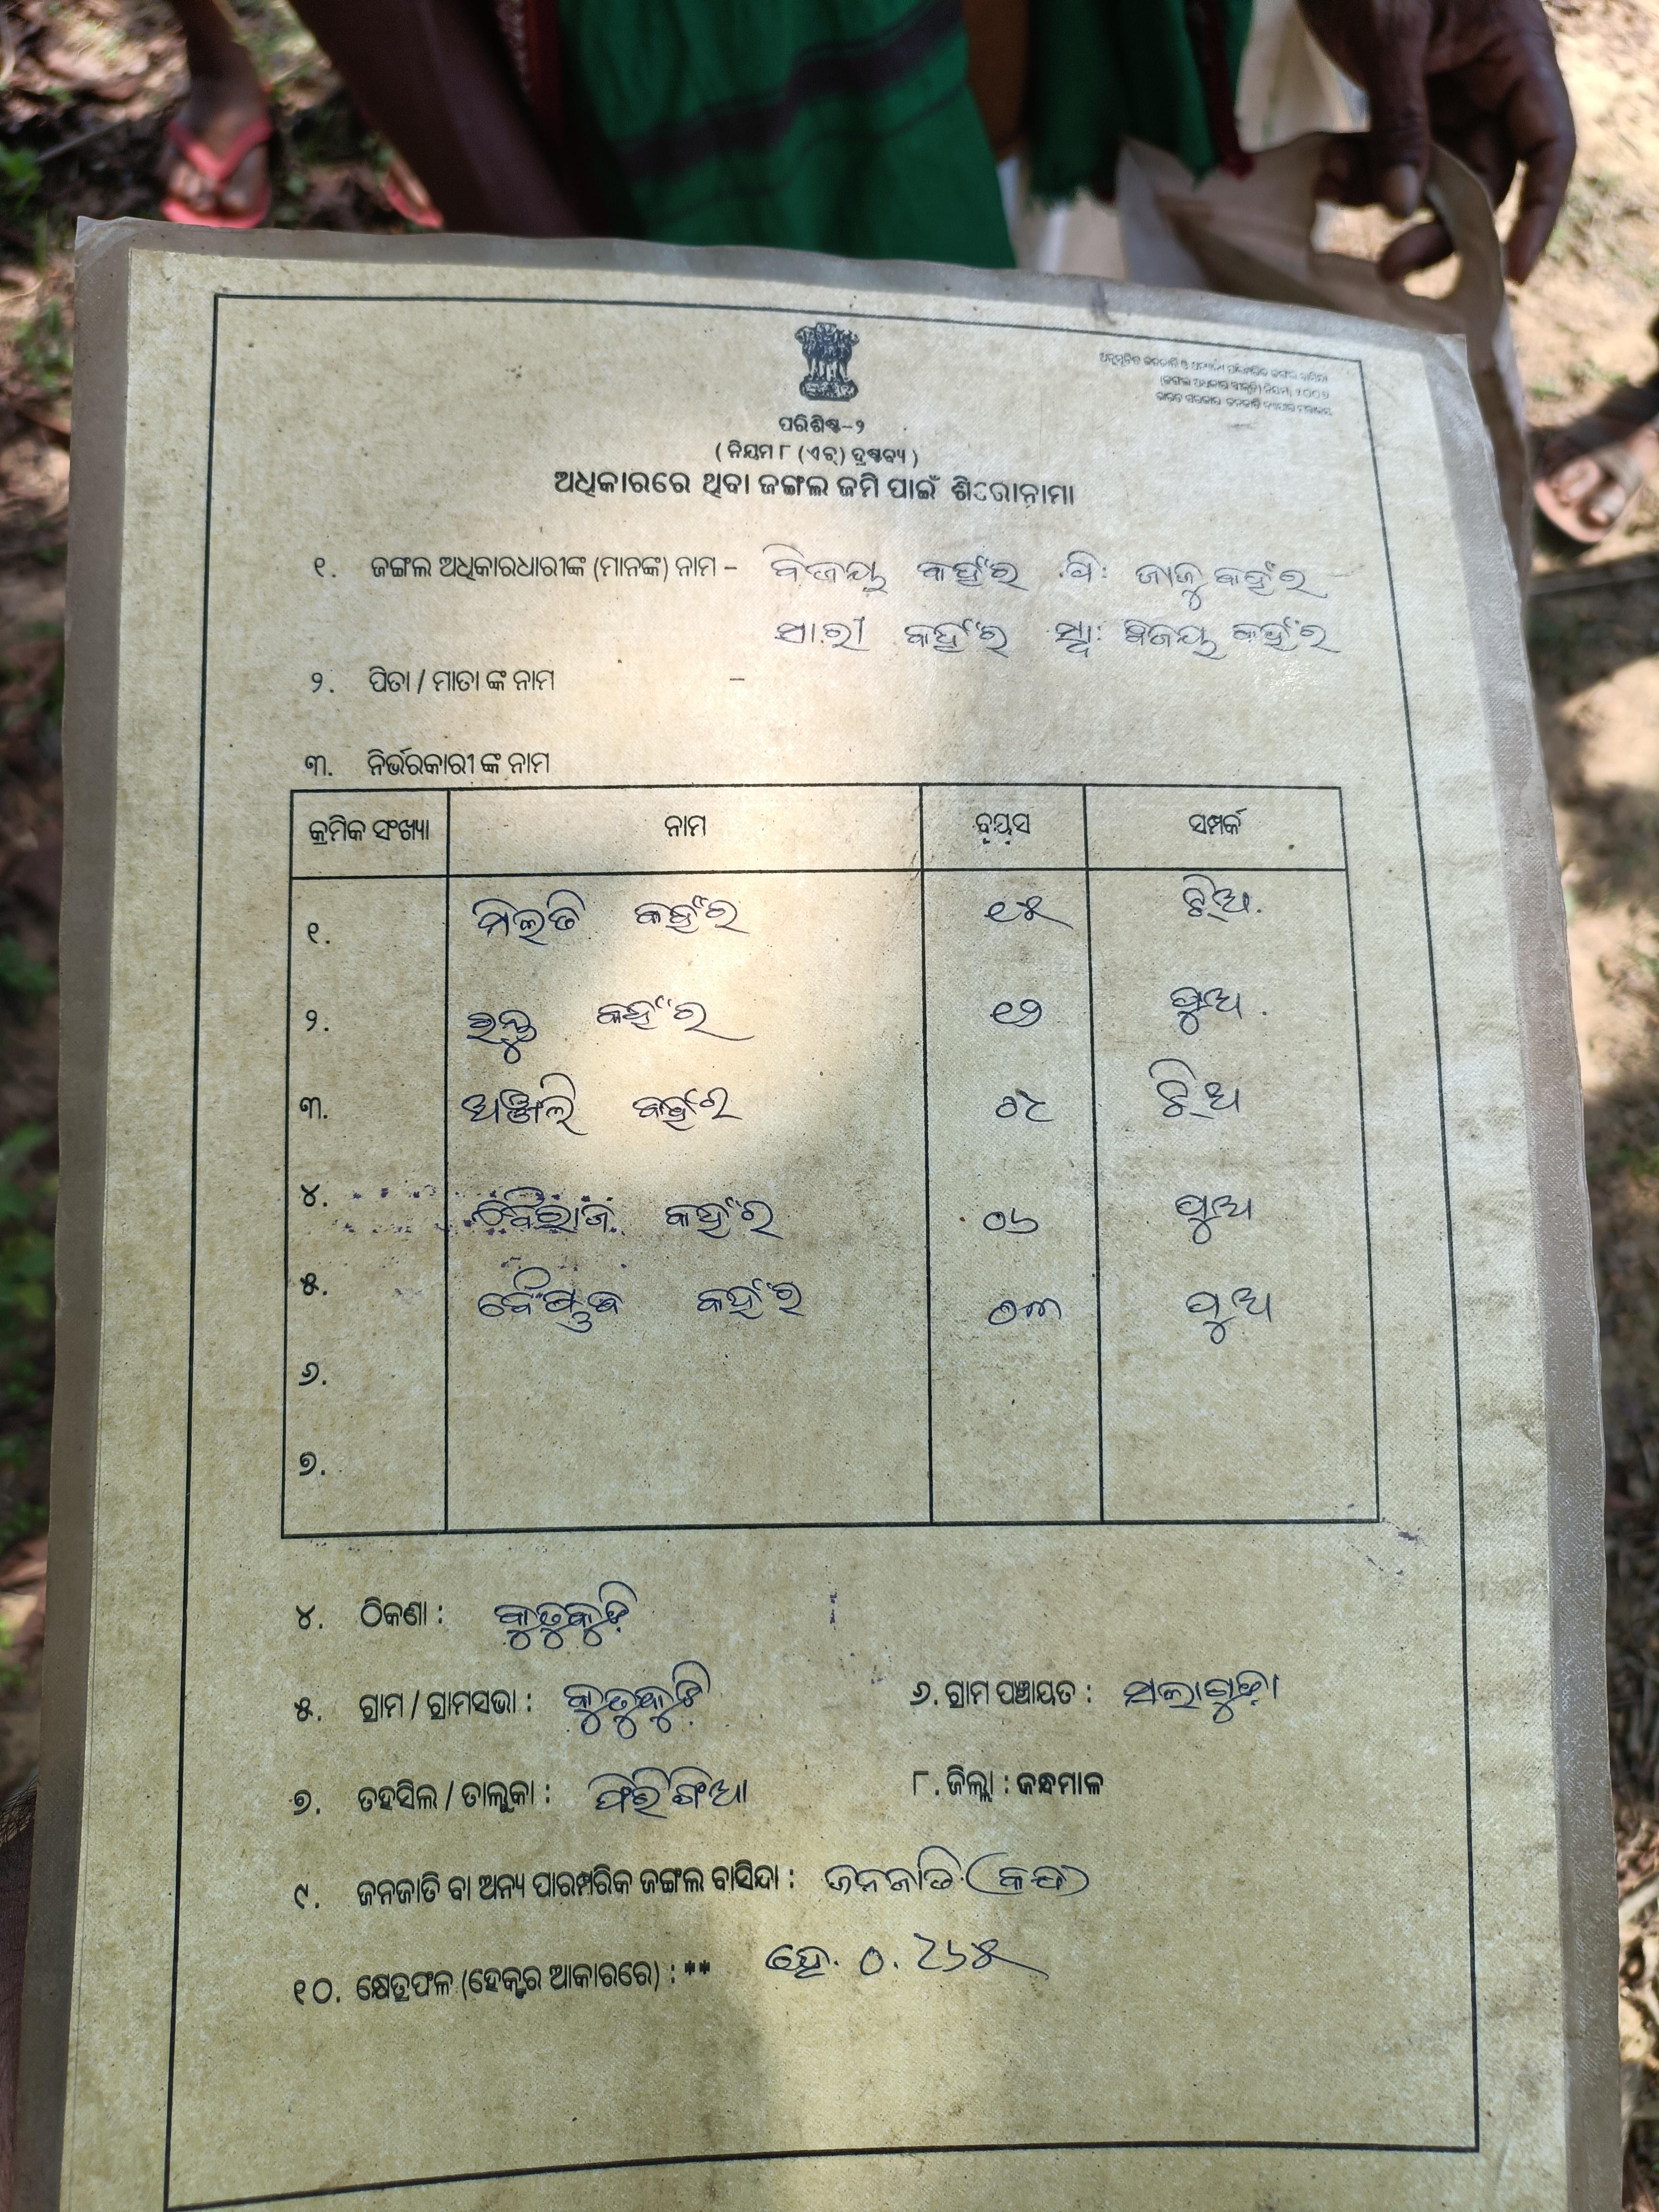 ଅନୁସୂଚିତ ଜନଜାତି ଓ ଅନ୍ୟାନ୍ୟ ପାରମ୍ପରିକ ଜଙ୍ଗଲ ବାସିନ୍ଦା
(ଜଙ୍ଗଲ ଅଧିକାର ସ୍ୱୀକୃତି) ନିୟମ, ୨୦୦୭
ଭାରତ ସରକାର ଜନଜାତି ବ୍ୟାପାର ମନ୍ତ୍ରାଳୟ
ପରିଶିଷ୍ଟ-୨
( ନିୟମ ୮ (ଏଚ୍) ଦ୍ରଷ୍ଟବ୍ୟ )
ଅଧିକାରରେ ଥିବା ଜଙ୍ଗଲ ଜମି ପାଇଁ ଶିରୋନାମା
୧. ଜଙ୍ଗଲ ଅଧିକାରଧାରୀଙ୍କ (ମାନଙ୍କ) ନାମ - ବିଜୟ କହଁର ପି: ଜାଜୁ କହଁର
ସାରୀ କହଁର ସ୍ୱା: ବିଜୟ କହଁର
୨. ପିତା / ମାତା ଙ୍କ ନାମ -
୩. ନିର୍ଭରକାରୀ ଙ୍କ ନାମ
କ୍ରମିକ ସଂଖ୍ୟା ନାମ ବୟସ ସମ୍ପର୍କ
୧. ମିଲତି କହଁର ୧୫ ଝିଅ.
୨. ରନ୍ତୁ କହଁର ୧୨ ପୁଅ.
୩. ଅଞ୍ଜଲି କହଁର ୦୯ ଝିଅ
୪. ବୈରାଜ କହଁର ୦୬ ପୁଅ
୫. ବୈଷ୍ଣବ କହଁର ୦୩ ପୁଅ
୬.
୭.
୪. ଠିକଣା : କୁତୁକୁଡ଼ି
୫. ଗ୍ରାମ / ଗ୍ରାମସଭା : କୁତୁକୁଡ଼ି ୬. ଗ୍ରାମ ପଞ୍ଚାୟତ : ସଲାଗୁଡ଼ା
୭. ତହସିଲ / ତାଲୁକା : ଫିରିଙ୍ଗିଆ ୮. ଜିଲ୍ଲା : କନ୍ଧମାଳ
୯. ଜନଜାତି ବା ଅନ୍ୟ ପାରମ୍ପରିକ ଜଙ୍ଗଲ ବାସିନ୍ଦା : ଜନଜାତି (କନ୍ଧ)
୧୦. କ୍ଷେତ୍ରଫଳ (ହେକ୍ଟର ଆକାରରେ) : ** ହେ. ୦.୨୬୫